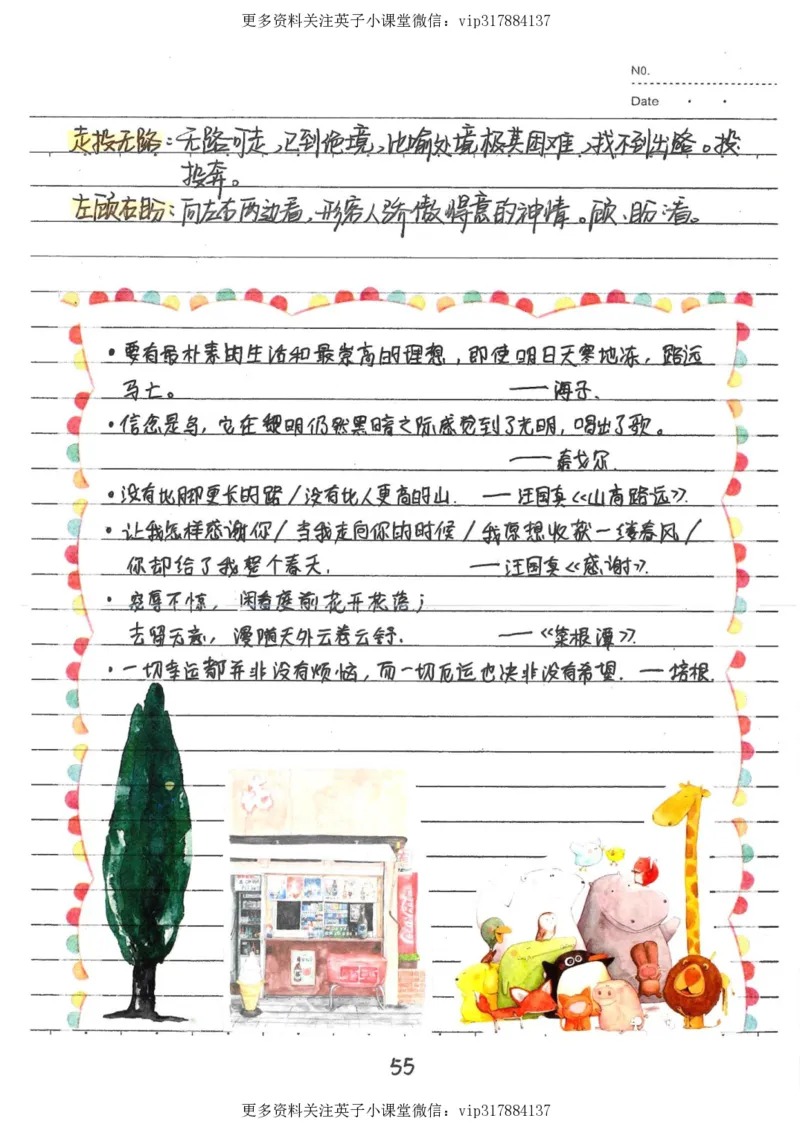 更多资料关注英子小课堂微信：vip317884137
NO.
Date
走投无路：无路可走，已到绝境，比喻处境极其困难，找不到出路。投
投奔。
左顾右盼：向左右两边看，形容人骄傲得意的神情。顾、盼：看。
·要有最朴素的生活和最崇高的理想，即使明日天寒地冻，路远
马亡。 ——海子.
·信念是鸟，它在黎明仍然黑暗之际感觉到了光明，唱出了歌。
——泰戈尔.
·没有比脚更长的路/没有比人更高的山. ——汪国真《山高路远》.
·让我怎样感谢你/当我走向你的时候/我原想收获一缕春风/
你却给了我整个春天. ——汪国真《感谢》.
·宠辱不惊，闲看庭前花开花落；
去留无意，漫随天外云卷云舒. ——《菜根谭》.
·一切幸运都并非没有烦恼，而一切厄运也决非没有希望. ——培根.
55
更多资料关注英子小课堂微信：vip317884137